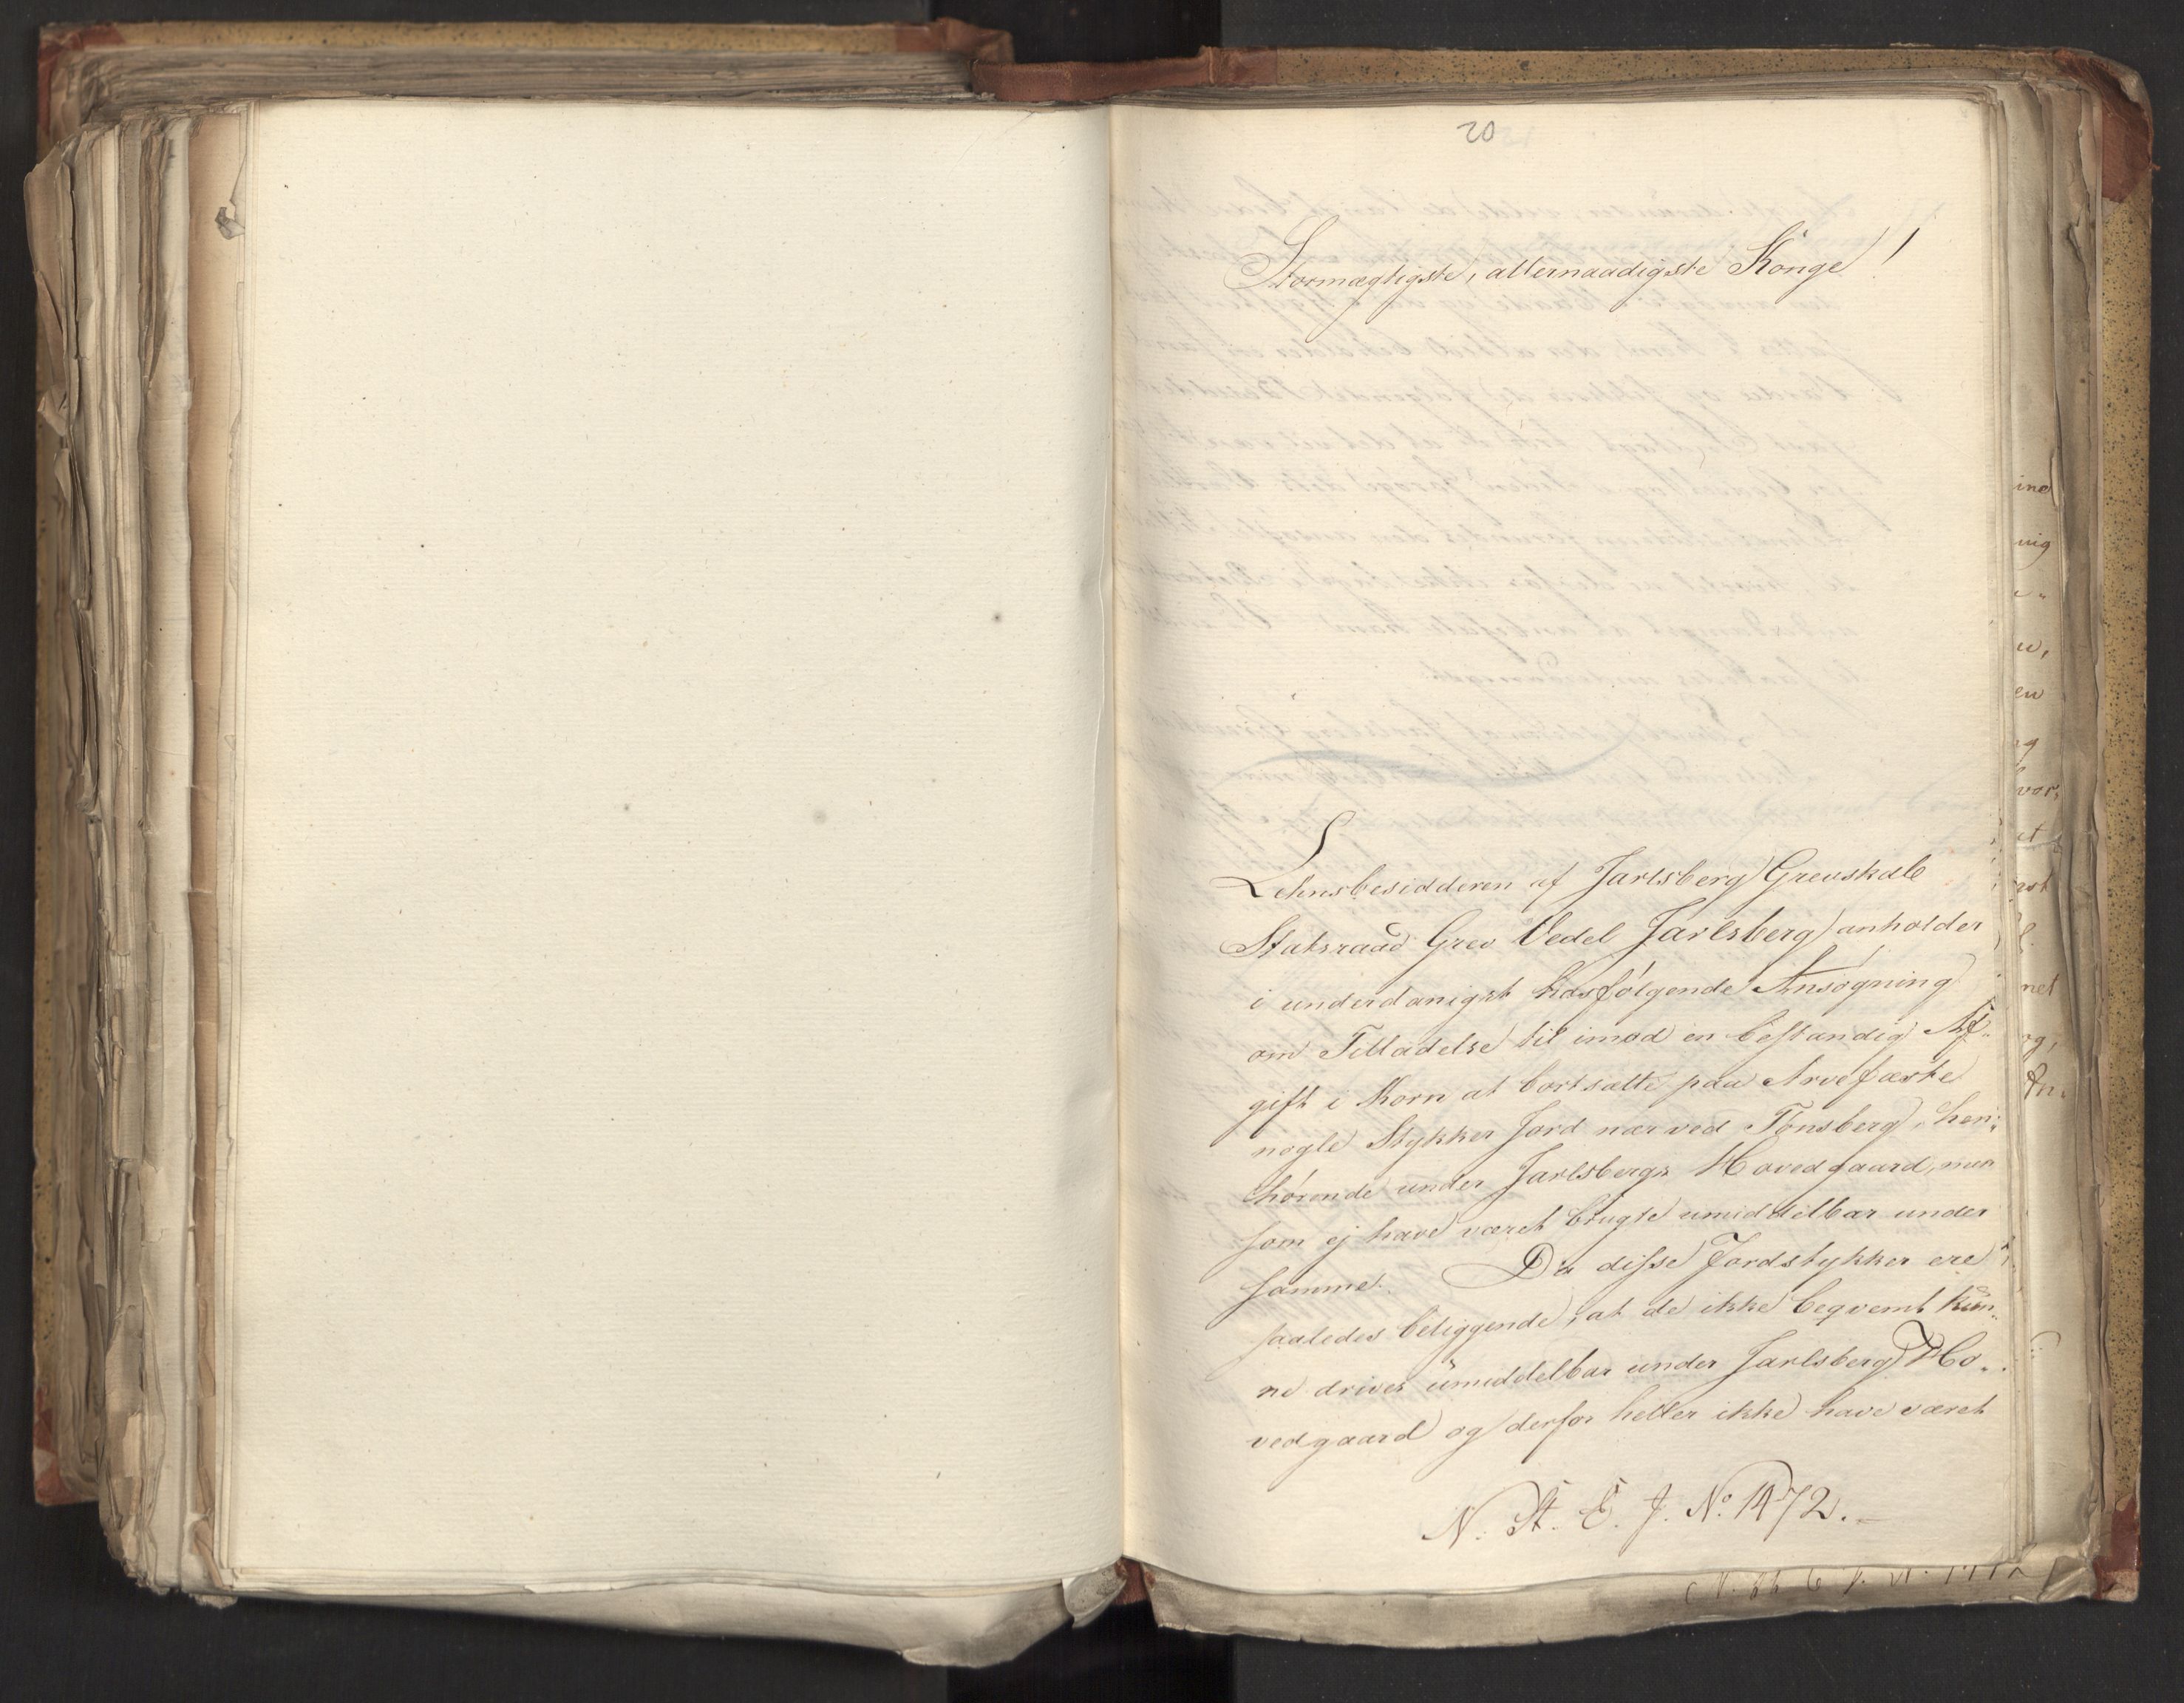 20
Stormægtigste, allernaadigste Konge!
Lehnsbesidderen af Jarlsberg Grevskab
Statsraad Grev Vedel Jarlsberg anholder
i underdanigst hosfølgende Ansøgning
om Tilladelse til imod en bestandig Af-
gift i Korn at bortsætte paa Arvefæste
nogle Stykker Jord nær ved Tønsberg, hen-
hørende under Jarlsbergs Hovedgaard, men
som ej have været brugte umiddelbar under
samme. Da disse Jordstykker ere
saaledes beliggende, at de ikke beqvemt kun-
ne drives umiddelbar under Jarlsberg Ho-
vedgaard og derfor heller ikke have været
N. St. E. J. No. 1472.